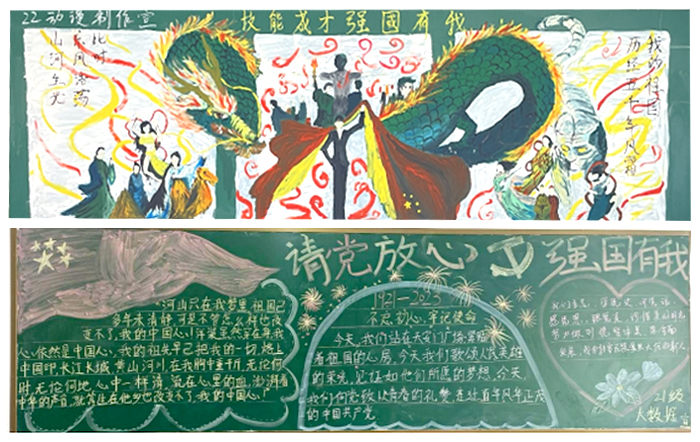 22动漫制作宣
技能成才强国有我
此时
长风浩荡
山河生光
我的祖国
历经五千年风霜
请党放心
强国有我
1921—2023
不忘初心,牢记使命
今天,我们站在天安门广场紧贴
着祖国的心房,今天我们歌颂人民英雄
的荣光,见证如他们所愿的梦想,今天,
我们向党致以青春的礼赞走过百年风华正茂
的中国共产党
河山只在我梦里,祖国已
多年未亲近,可是不管怎么样也改
变不了,我的中国心,洋装虽然穿在身,我
心依然是中国心,我的祖先早已把我的一切,烙上
中国印长江长城,黄山黄河,在我胸中重千斤,无论何
时无论何地,心中一样亲,流在心里的血,澎湃着
中华的声音,就算生在他乡也改变不了,我的中国心!
21级
大数据